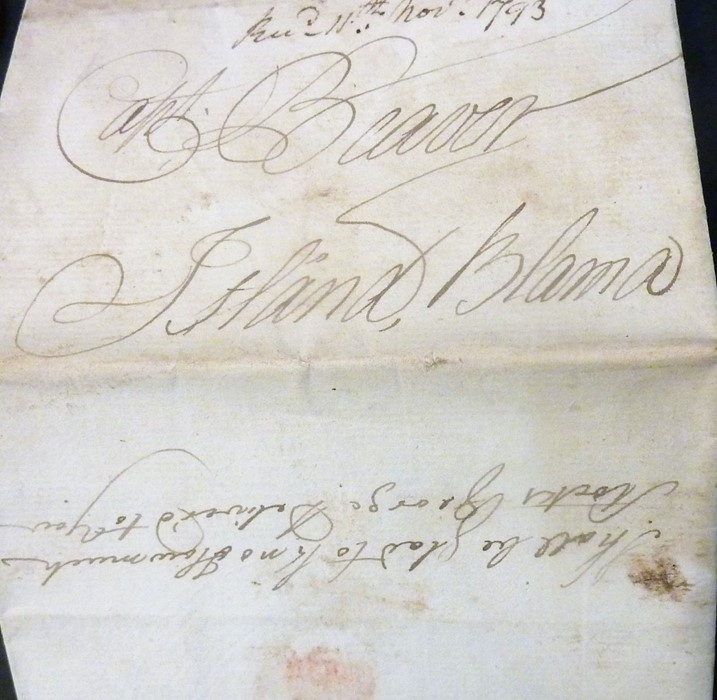 Rec.d 11.th Nov.r 1793
Capt. Beaver
Island, Blama
Shall be glad to kno How much
Stocks George Deliver'd to You